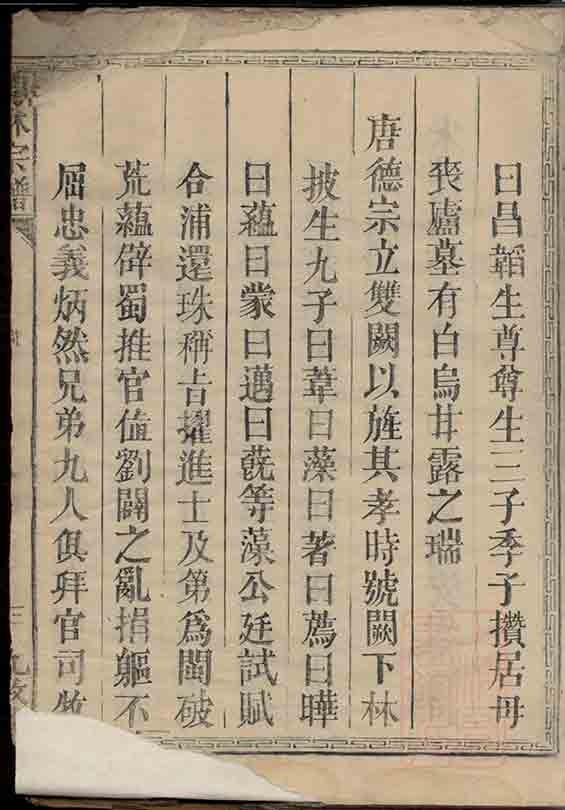 曰昌韜生尊尊生三子季子攢居母
喪廬墓有白烏甘露之瑞
唐德宗立雙闕以旌其孝時號闕下林
披生九子曰葦曰藻曰著曰薦曰曄
曰蘊曰蒙曰邁曰蔇等藻公廷試賦
合浦還珠稱吉擢進士及第爲閩破
荒蘊辟蜀推官值劉闢之亂捐軀不
屈忠義炳然兄弟九人俱拜官司
林宗譜